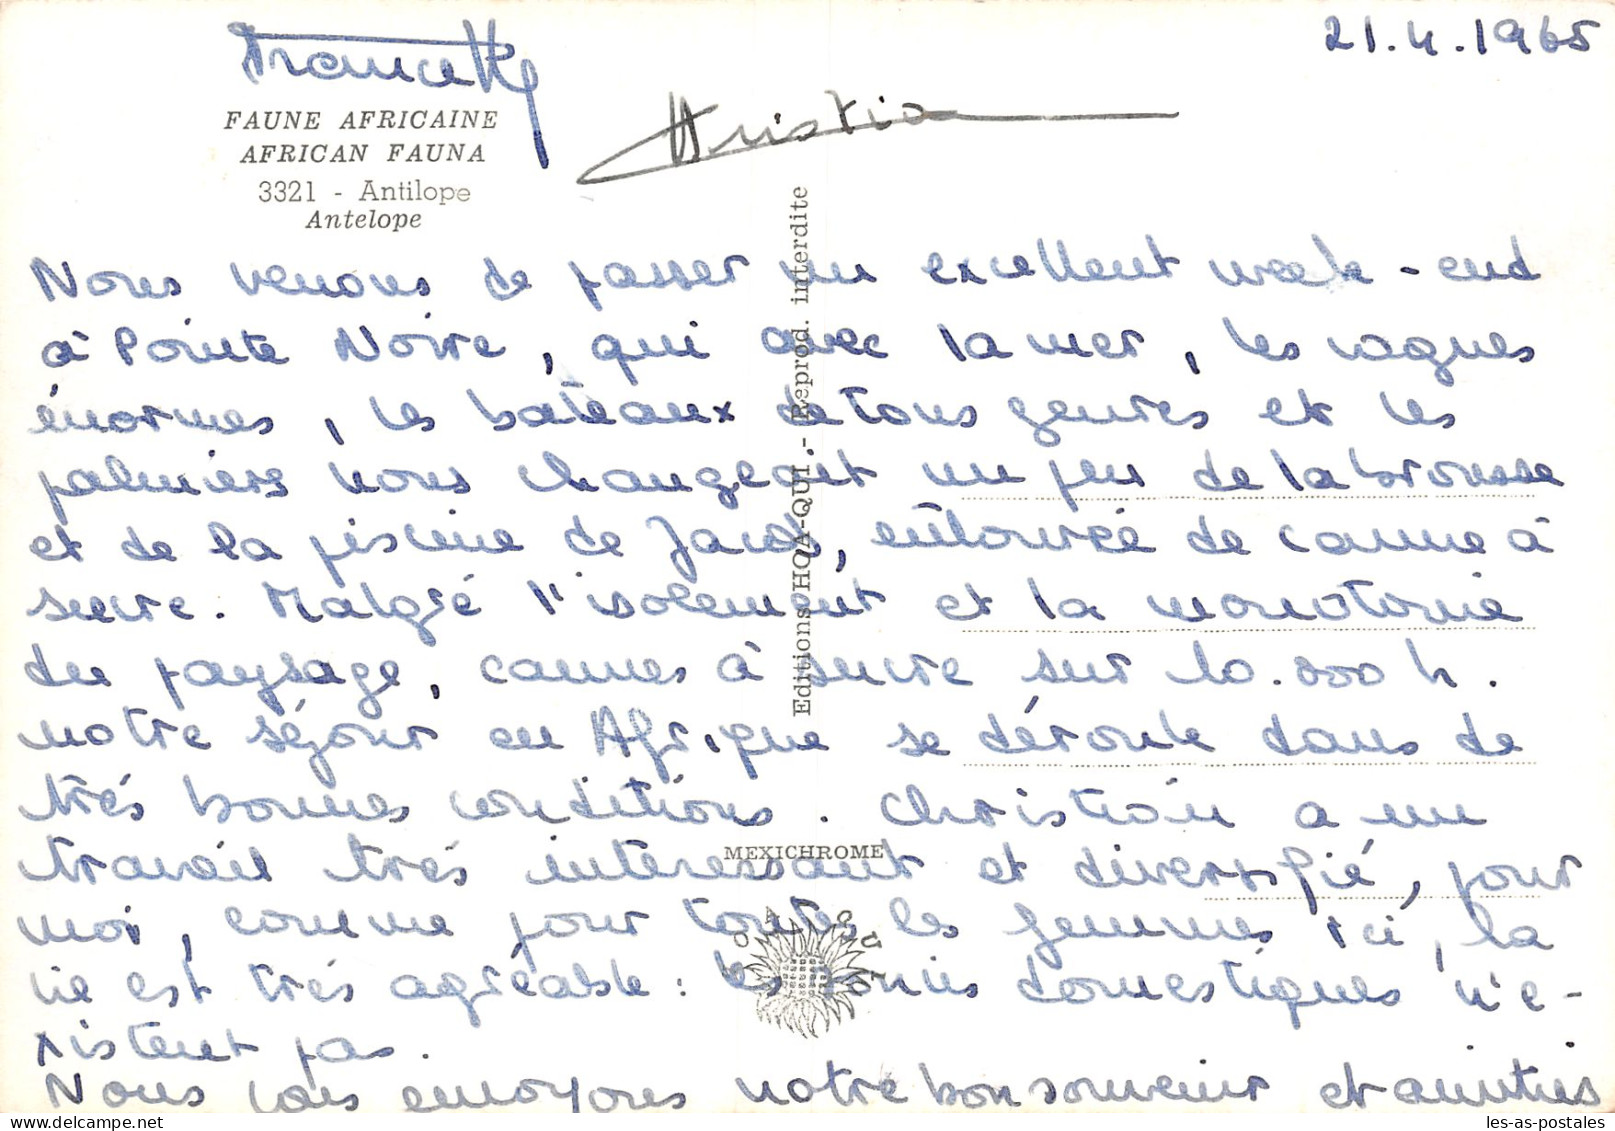 21.4.1965
Francette
Christian
FAUNE AFRICAINE
AFRICAN FAUNA
3321 - Antilope
Antelope
Nous venons de passer un excellent week-end
à Pointe Noire, qui avec la mer, les vagues
énormes, les bateaux de tous genres et les
palmiers nous changeait un peu de la brousse
et de la piscine de Jacob, entourée de canne à
sucre. Malgré l'isolement et la monotonie
du paysage, cannes à sucre sur 10.000 h.
notre séjour en Afrique se déroule dans de
très bonnes conditions. Christian a un
travail très interessant et diversifié, pour
moi, comme pour toutes les femmes ici, la
vie est très agréable : les soucis domestiques n'e-
xistent pas.
Nous vous envoyons notre bon souvenir et amitiés
Editions HOA-QUI - Reprod. interdite
MEXICHROME
les-as-postales